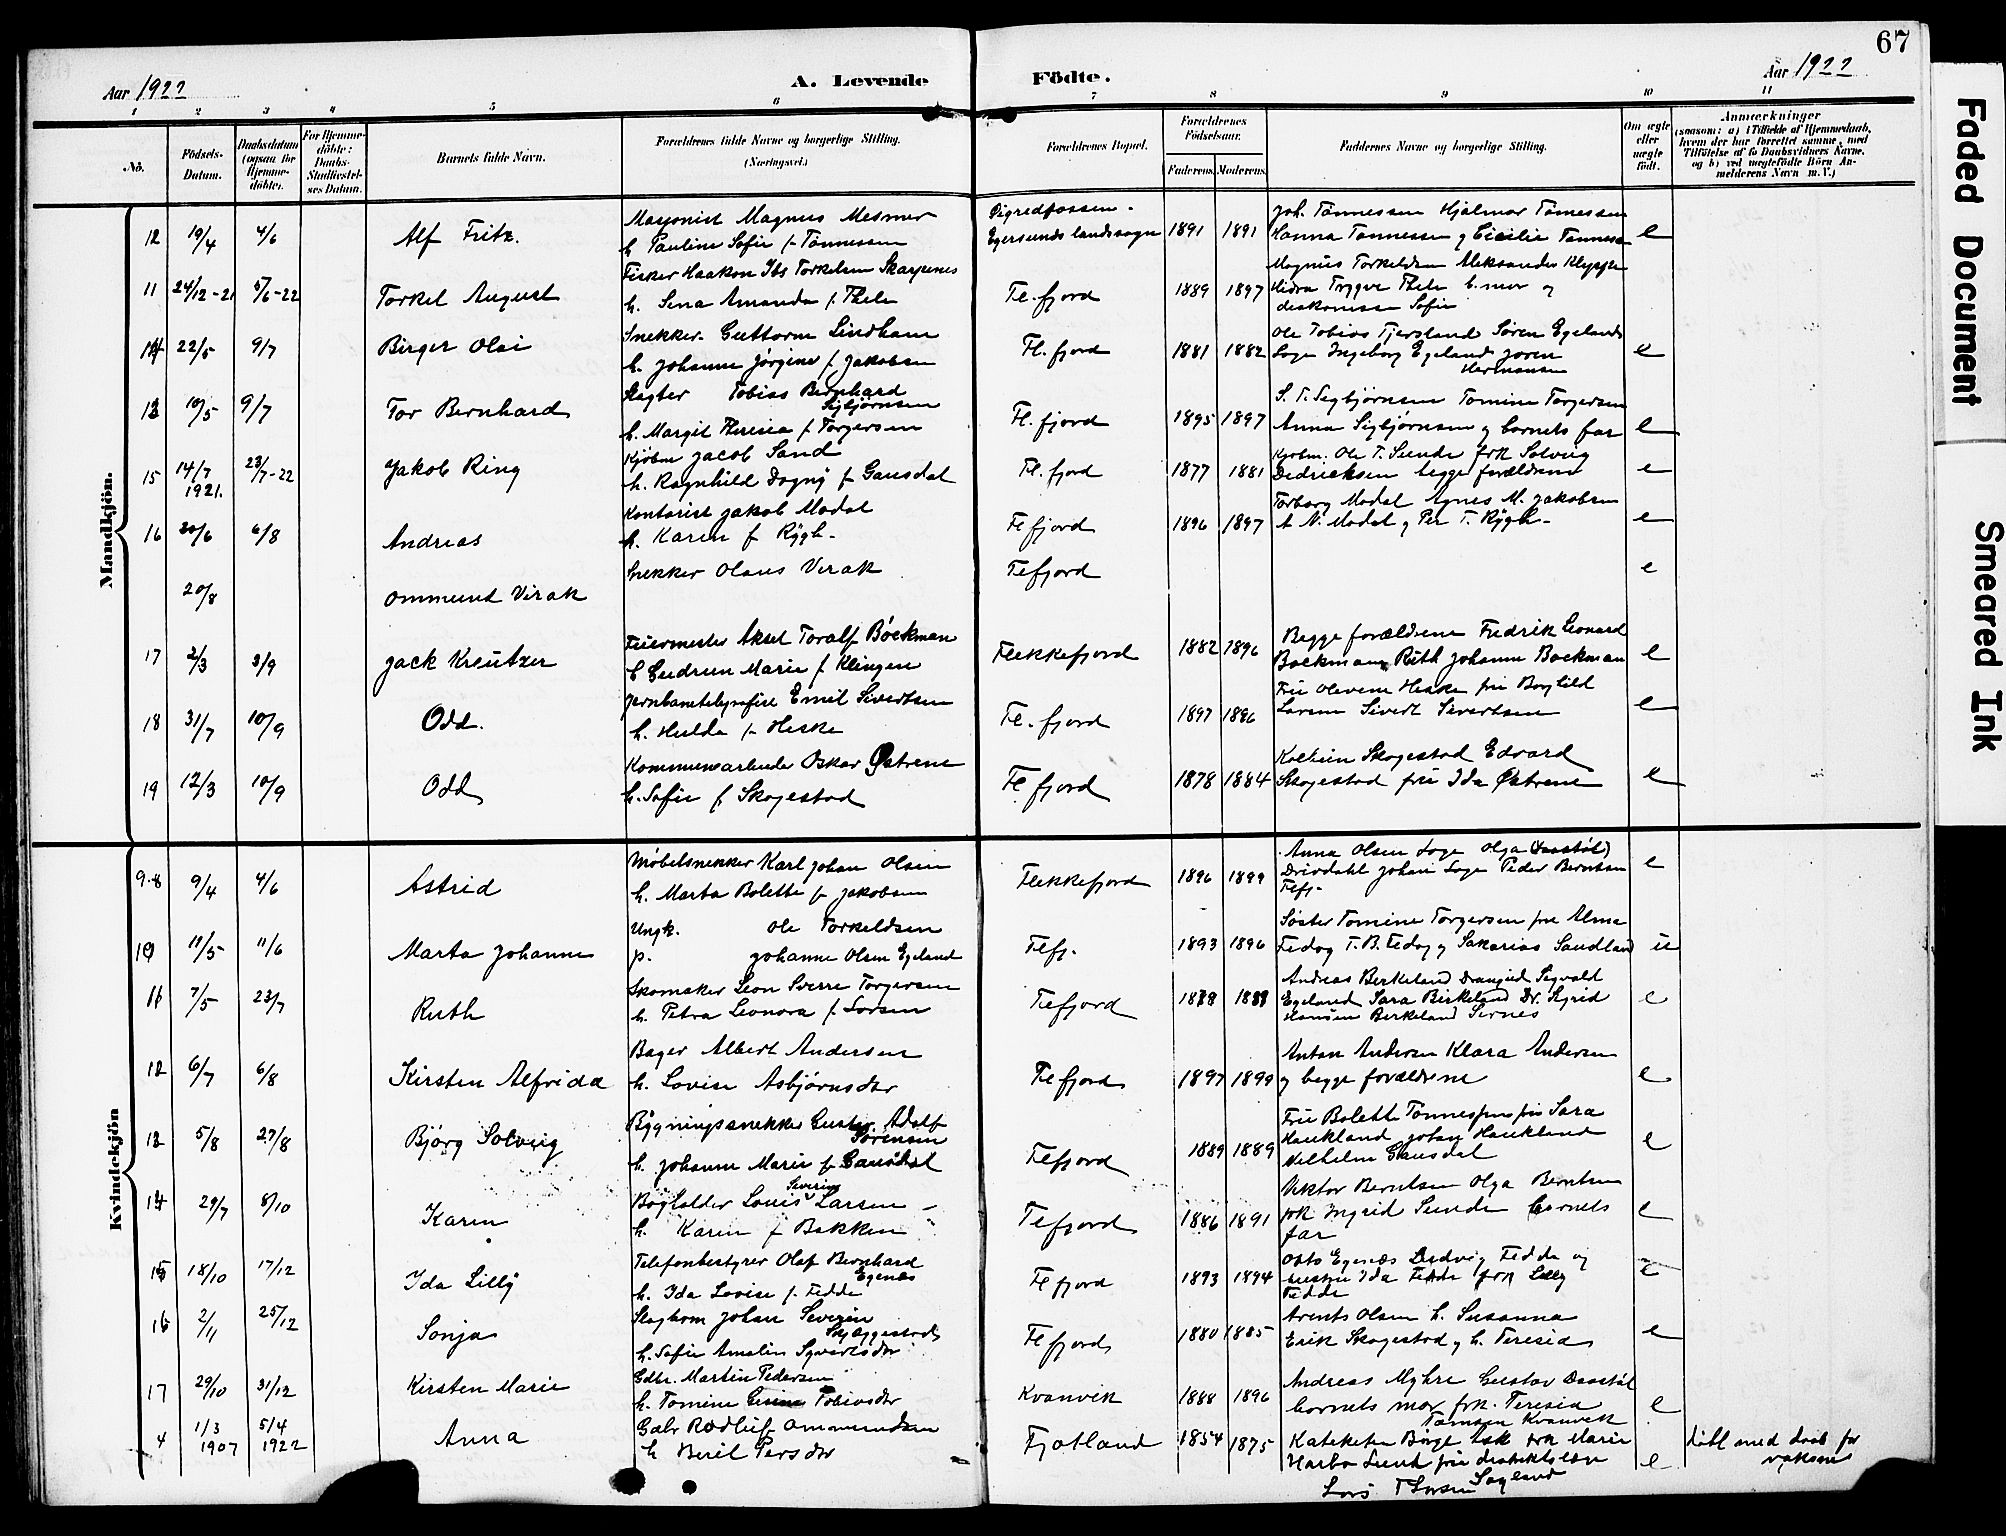 67
Aar 1922
A. Levende Födte.
Aar 1922
1 2 3 4 5 6 7 8 9 10 11
No.
Födsels-Datum.
Daabsdatum (ogsaa for Hjemme-döbte).
For Hjemme-döbte: Daabs-Stadfæstel-ses Datum.
Barnets fulde Navn.
Forældrenes fulde Navne og borgerlige Stilling. (Næringsvei.)
Forældrenes Bopæl.
Forældrenes Födselsaar.
Faderens. Moderens.
Faddernes Navne og borgerlige Stilling.
Om ægte eller uægte födt.
Anmærkninger (saasom: a) i Tilfælde af Hjemmedaab, hvem der har forrettet samme, med Tilföielse af to Daabsvidners Navne, og b) ved uægtefödte Börn Anmelderens Navn m. V.)
Mandkjön.
12 19/4 4/6 Alf Fritz. Magnus Mesmer
h. Pauline Sofie f. Tønnessen Egersunds landssogn 1891 1891 Joh. Tønnessen Hjalmar Tønnessen
Hanna Tønnessen g Cicilie Tønnessen e
11 24/12-21 5/6-22 Torkel August Fisker Haakon Ibs Torkelsen Skarpenes
h. Sena Amanda f. Thele Fl. fjord 1889 1897 Magnus Torkeldsen Aleksander
Hidra Trygve Thele b. mor g
diakonisse Sofie
14 22/5 9/7 Birger Olai Snekker Guttorm Lindham
h. Johanne Jørgine f. Jakobsen Fl. fjord 1881 1882 Ole Tobias Tjersland Søren Egeland
Loge Ingeborg Egeland Joren
Hermansen e
13 10/5 9/7 Tor Bernhard Slagter Tobias Bernhard
Sigbjørnsen
h. Margit Theresia f. Torgersen Fl. fjord 1895 1897 S. T. Sigbjørnsen Tomine Torgersen
Anna Sigbjørnsen g barnets far e
15 14/7 1921. 23/7-22 Jakob Ring Kjøbm Jacob Sand
h. Ragnhild Dagny f Gausdal Fl. fjord 1877 1881 Kjøbm. Ole T. Sunde frk Solveig
Dedricksen begge forældrene e
16 30/6 6/8 Andreas Kontorist Jakob Modal
h. Karen f Rygh. Flfjord 1896 1897 Torborg Modal Agnes M. Jakobsen
A N. Modal g Per T. Rygh. e
20/8 Ommund Virak Snekker Olaus Virak Flfjord e
17 2/3 3/9 Jack Kreutzer Fuermester Aksel Toralf Böckman
h Gudrun Marie f Klingen Flekkefjord 1882 1896 Begge forældrene Fredrik Leonard
Bøckman Ruth Johanne Bøckman e
18 31/7 10/9 Odd. Jernbanetelegrafist Emil Sivertsen
h. Hulda f. Heske Fl. fjord 1897 1896 Fru Olevine Heske fru Boghild
Larsen Sivert Sivertsen e
19 12/3 10/9 Odd Kommunearbeider Oskar Østrem
h. Sofie f Skogestad Fl fjord 1878 1884 Skogestad Edvard
Skogestad fru Ida Østrem e
Kvindekjön
9.8 9/4 4/6 Astrid Møbelsnekker Karl Johan Olsen
h. Marta Bolette f Jakobsen Flekkefjord 1896 1899 Anna Olsen Loge Olga
Drivdahl Johan Loge Peder Berntsen
Flfj. e
10 11/5 11/6 Marta Johanne Ungk. Ole Torkeldsen
p. Johanne Olsen Egeland Flfj. 1893 1896 Søster Tomine Torgersen fru Alma
Fedog T. B. Fedog g Sakarias Sandland u
11 7/5 23/7 Ruth Skomaker Leon Sverre Torgersen
h. Petra Leonora f. Larsen Flefjord 1888 Andreas Birkeland Drangeid Sigvald
Egeland Sara Birkeland Dr. Sigrid
Hansen Birkeland Sirnes e
12 6/7 6/8 Kirsten Alfrida Bager Albert Andersen
h. Lovise Asbjørnsdtr Flefjord 1897 1899 Anton Andersen Klara Andersen
g begge forældrene e
13 5/8 27/8 Bjørg Solveig Bygningssnekker Gustav Adolf
Sørensen
h. Johanne Marie f Gausdal Flefjord 1889 1889 Fru Bolett Tønnessen fru Sara
Haukland Johan Haukland
Vilhelm Gausdal e
14 29/7 8/10 Karen Bogholder Louis Severin Larsen
h. Karen f Bakken Flefjord 1886 1891 Viktor Berntsen Olga Berntsen
frk Ingrid Sunde barnets
far e
15 18/10 17/12 Ida Lilly Telefonbestyrer Olaf Bernhard
Egenæs
h. Ida Lovise f. Fedde Flfjord 1893 1894 Otto Egenæs Ludvig Fedde og
hustru Ida Fedde frk Lilly
Fedde e
16 2/11 25/12 Sonja Johan Severin
h. Sofie Amalie Syvertsdtr Flfjord 1880 1885 Arents Olsen h. Susanna
Erik Skogestad g h. Teresia e
17 29/10 31/12 Kirsten Marie Gdbr. Martin Pedersen
h. Tomine Tobiasdtr Kvanvik 1888 1896 Andreas Myhre Gustav Daastøl
barnets mor frk. Teresia
Tomsen Kvanvik e
4 1/3 1907 5/4 1922 Anna Gabr Rodluf Ommundsen
h Beril Persdtr Fjotland 1854 1875 Kateketen Børge frk Marie
Harbo Lund fru distriktslæe
Lars T Larsen Sogland e døbt med daab for
voksne
Faded Document
Smeared Ink